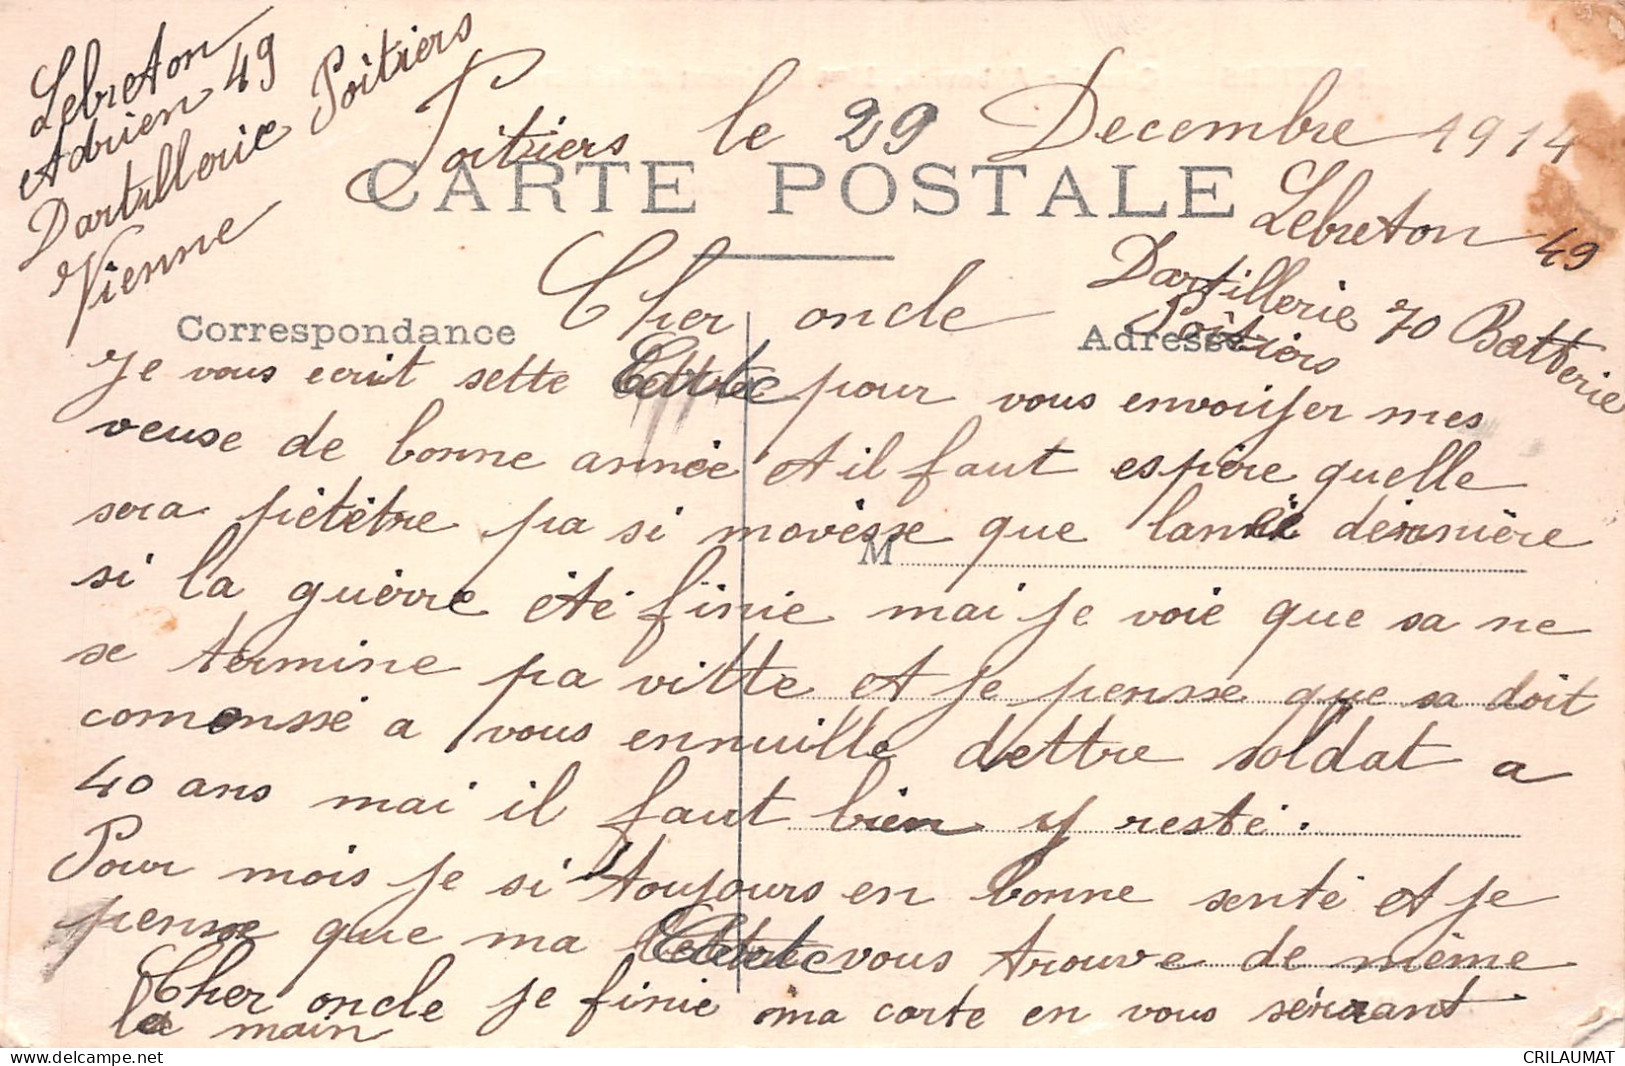 Lebreton
Adrien 49
Dartillerie Poitiers
Vienne
Poitiers le 29 Decembre 1914
CARTE POSTALE
Lebreton 49
Dartillerie 70 Battterie
Poitiers
Correspondance
Adresse
Cher oncle
Je vous ecrit sette Carte pour vous envoiyer mes
veuse de bonne année et il faut espère quelle
sera pietètre pa si movèsse que lannèe dérnière
M
si la guèrre été finie mai je voie que sa ne
se termine pa vitte et je pensse que sa doit
comenssé a vous ennuille dettre soldat a
40 ans mai il faut bien y resté.
Pour mois je si toujours en bonne senté et je
pensse que ma Carte vous trouve de même
Cher oncle je finie ma carte en vous sérrant
la main
CRILAUMAT